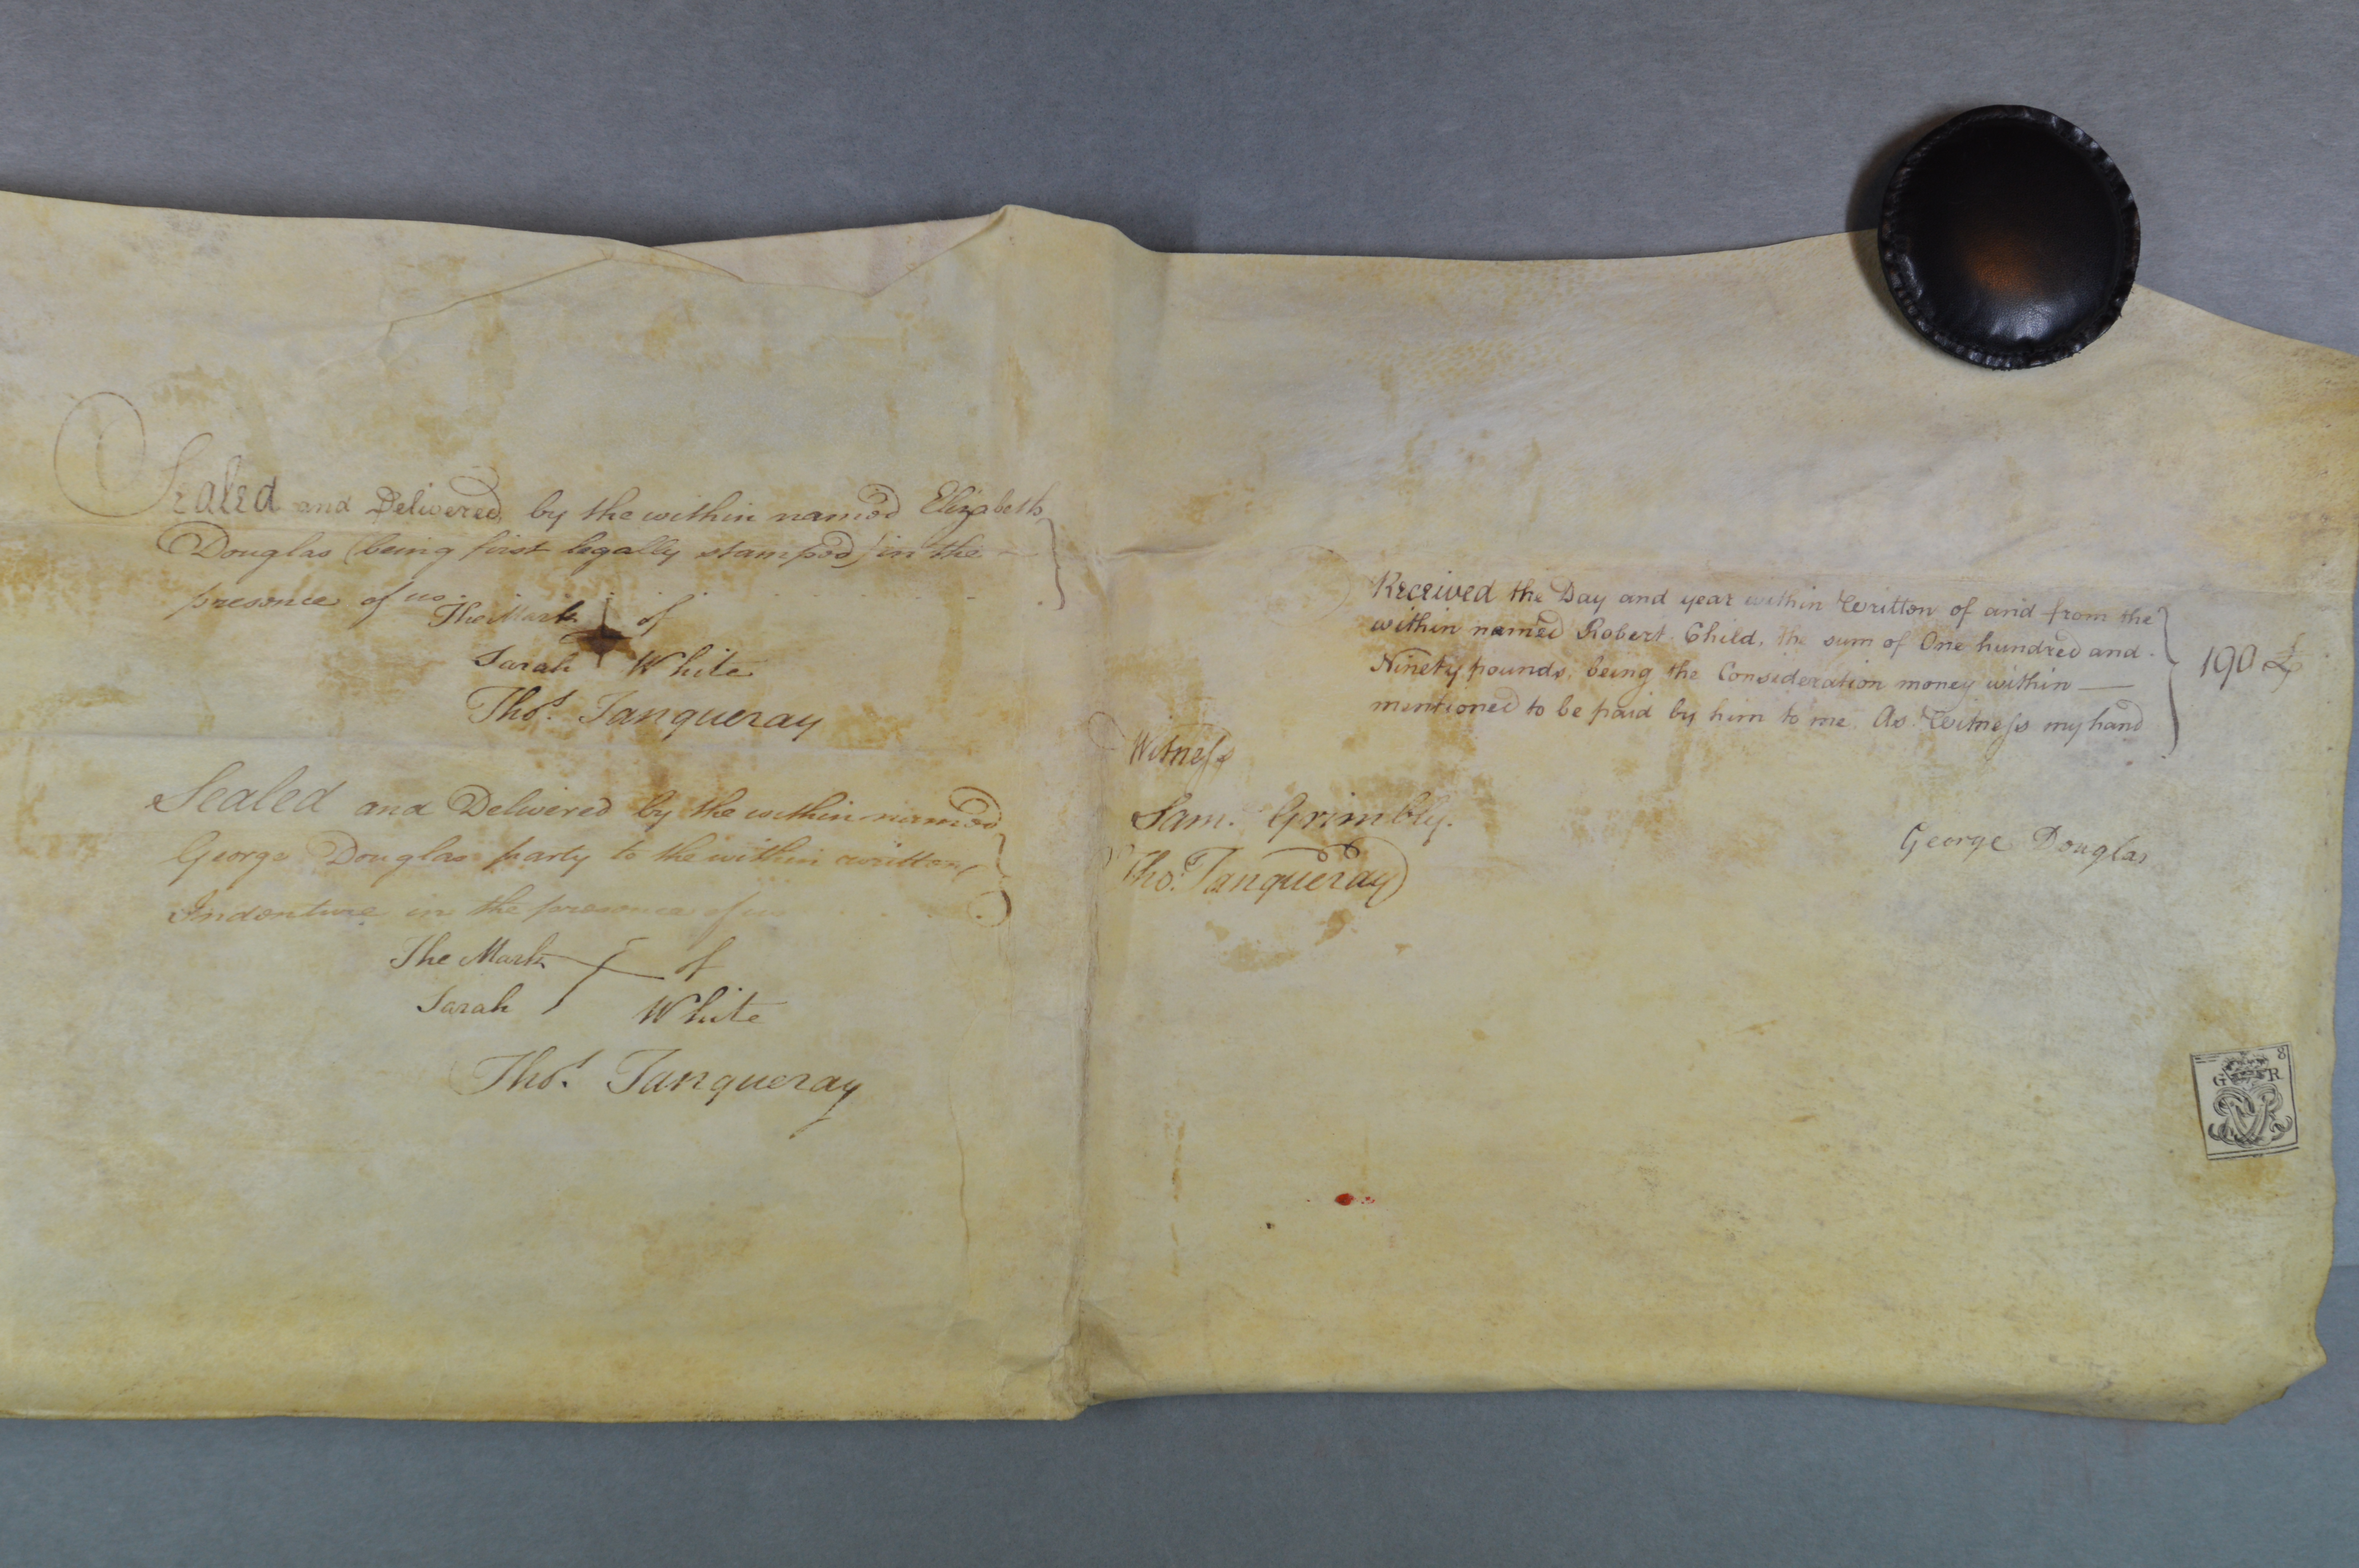 Sealed and Delivered by the within named Elizabeth
Douglas (being first legally stamped) in the
presence of us
The Mark of
Sarah White
Thos. Tanqueray
Sealed and Delivered by the within named
George Douglas party to the within written
Indenture in the presence of us
The Mark of
Sarah White
Thos. Tanqueray
Received the Day and year within Written of and from the
within named Robert Child, the sum of One hundred and
Ninety pounds, being the Consideration money within
mentioned to be paid by him to me. As Witness my hand
190£
Witness
Sam. Grimbly.
Thos. Tanqueray
George Douglas
8
G R